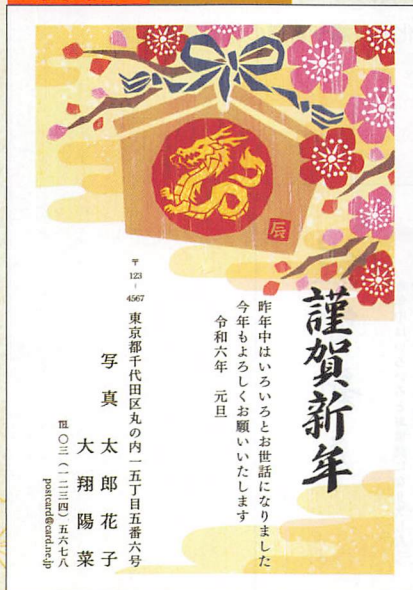 辰
謹賀新年
昨年中はいろいろとお世話になりました
今年もよろしくお願いいたします
令和六年 元旦
〒123-4567
東京都千代田区丸の内一五丁目五番六号
写真 太郎花子
大翔陽菜
℡〇三(一二三四)五六七八
postcard@card.ne.jp